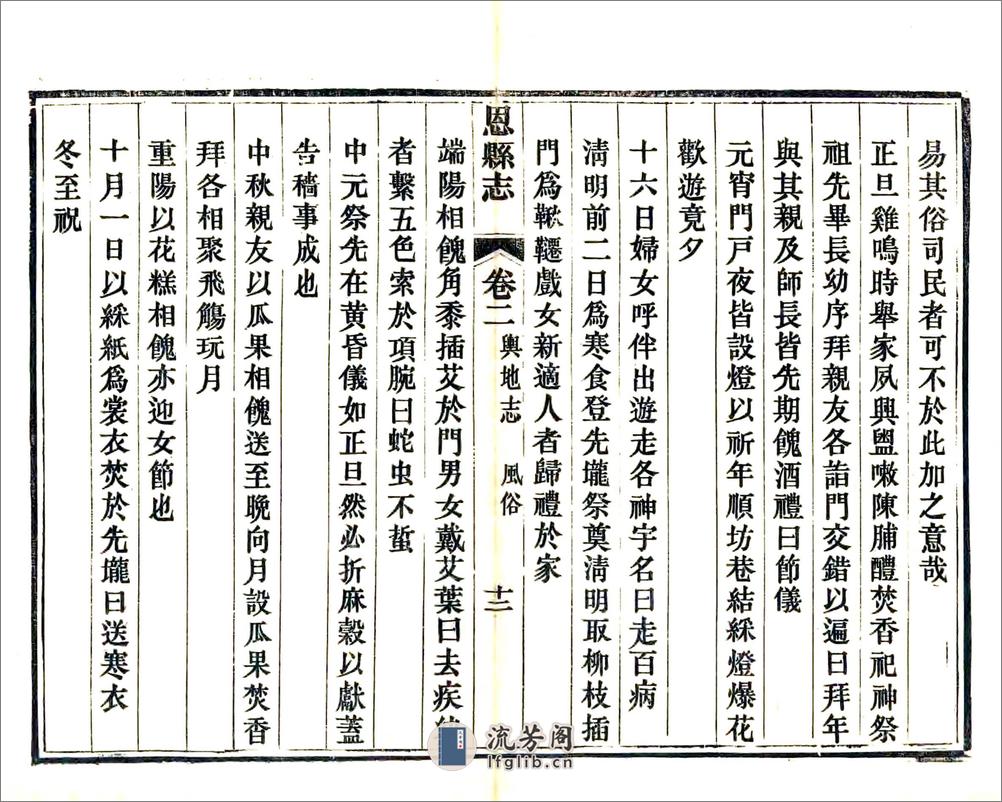 易其俗司民者可不於此加之意哉
正旦雞鳴時舉家夙興盥嗽陳脯醴焚香祀神祭
祖先畢長幼序拜親友各詣門交錯以遍曰拜年
與其親及師長皆先期餽酒禮曰節儀
元宵門戸夜皆設燈以祈年順坊巷結綵燈爆花
歡遊竟夕
十六日婦女呼伴出遊走各神宇名曰走百病
淸明前二日為寒食登先壠祭奠淸明取柳枝插
門為鞦韆戲女新適人者歸禮於家
恩縣志
卷二
輿地志
風俗
十二
端陽相餽角黍插艾於門男女戴艾葉曰去疾
者繫五色索於項腕曰蛇虫不蜇
中元祭先在黃昏儀如正旦然必折麻穀以獻蓋
告穡事成也
中秋親友以瓜果相餽送至晚向月設瓜果焚香
拜各相聚飛觴玩月
重陽以花糕相餽亦迎女節也
十月一日以綵紙為裳衣焚於先壠曰送寒衣
冬至祝
流芳阁
lfglib.cn